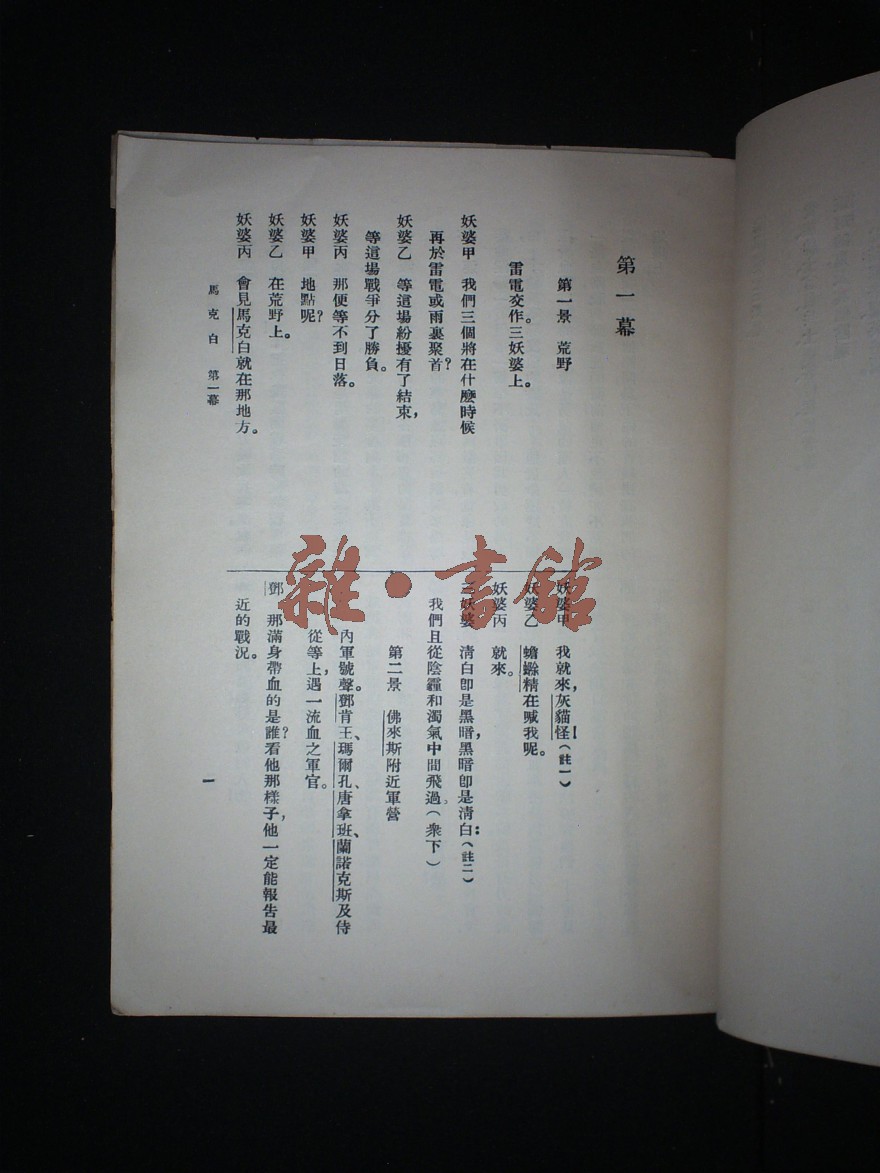 第一幕
第一景　荒野
雷電交作。三妖婆上。
妖婆甲　我們三個將在什麼時候
再於雷電或雨裏聚首？
妖婆乙　等這場紛擾有了結束，
等這場戰爭分了勝負。
妖婆丙　那便等不到日落。
妖婆甲　地點呢？
妖婆乙　在荒野上。
妖婆丙　會見馬克白就在那地方。
妖婆甲　我就來，灰貓怪！（註一）
妖婆乙　蟾蜍精在喊我呢。
妖婆丙　就來。
三妖婆　清白卽是黑暗，黑暗卽是清白：（註二）
我們且從陰霾和濁氣中間飛過。（衆下）
第二景　佛來斯附近軍營
內軍號聲。鄧肯王、瑪爾孔、唐拿班、蘭諾克斯及侍
從等上，遇一流血之軍官。
鄧　那滿身帶血的是誰？看他那樣子，他一定能報告最
近的戰況。
馬克白　第一幕
一
雜·書館